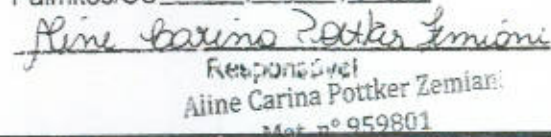 Aline Carina Pottker Zemiani
Responsável
Aline Carina Pottker Zemiani
Mat. nº 959801